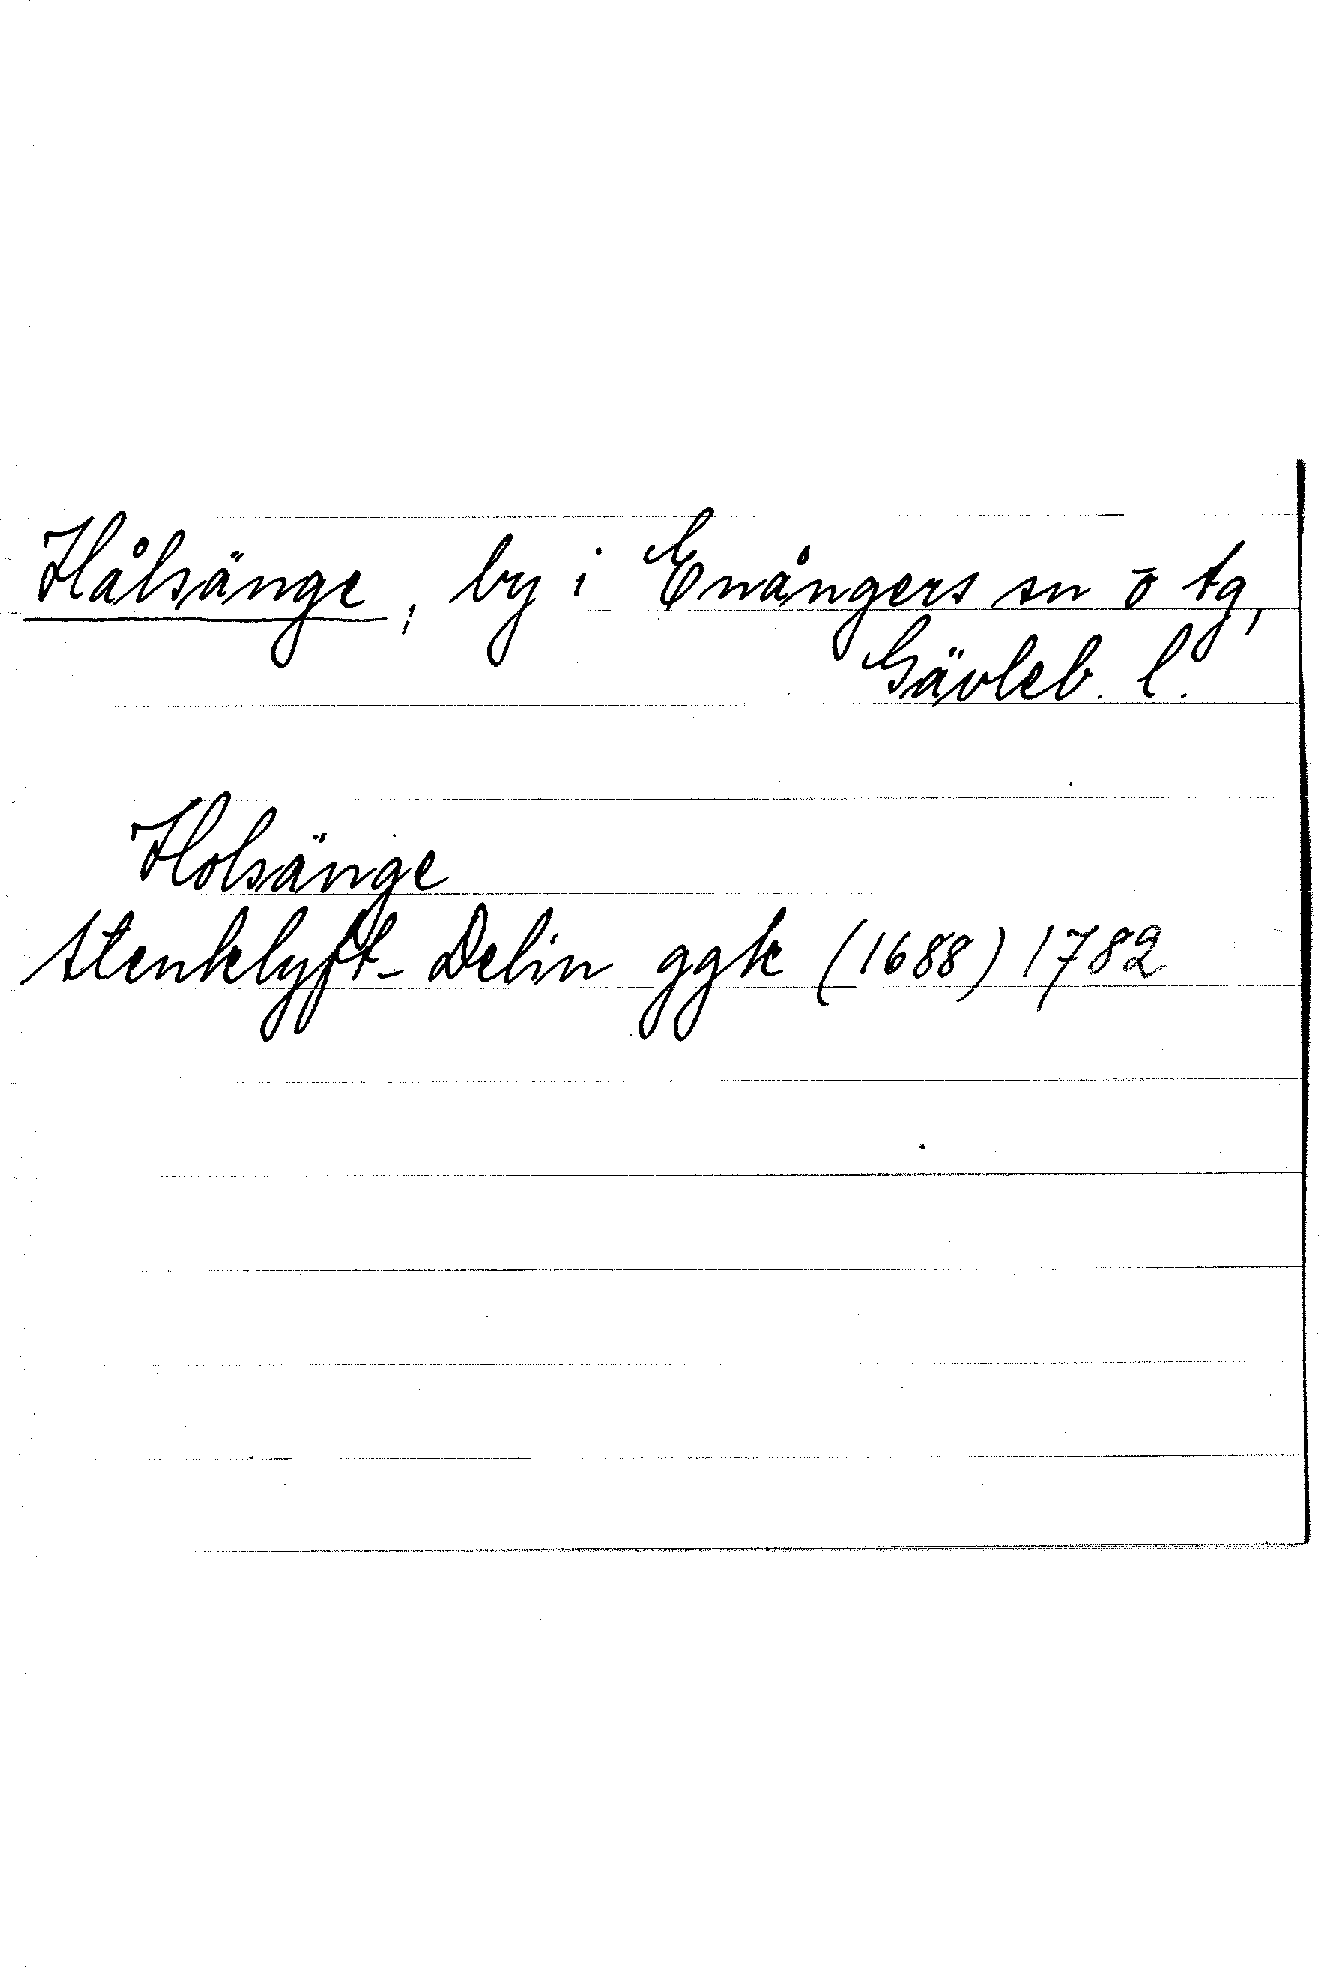 Hålsänge, by i Enångers sn o tg,
Gävleb. l.
Holsänge
Stenklyft- Delin ggk (1688) 1782